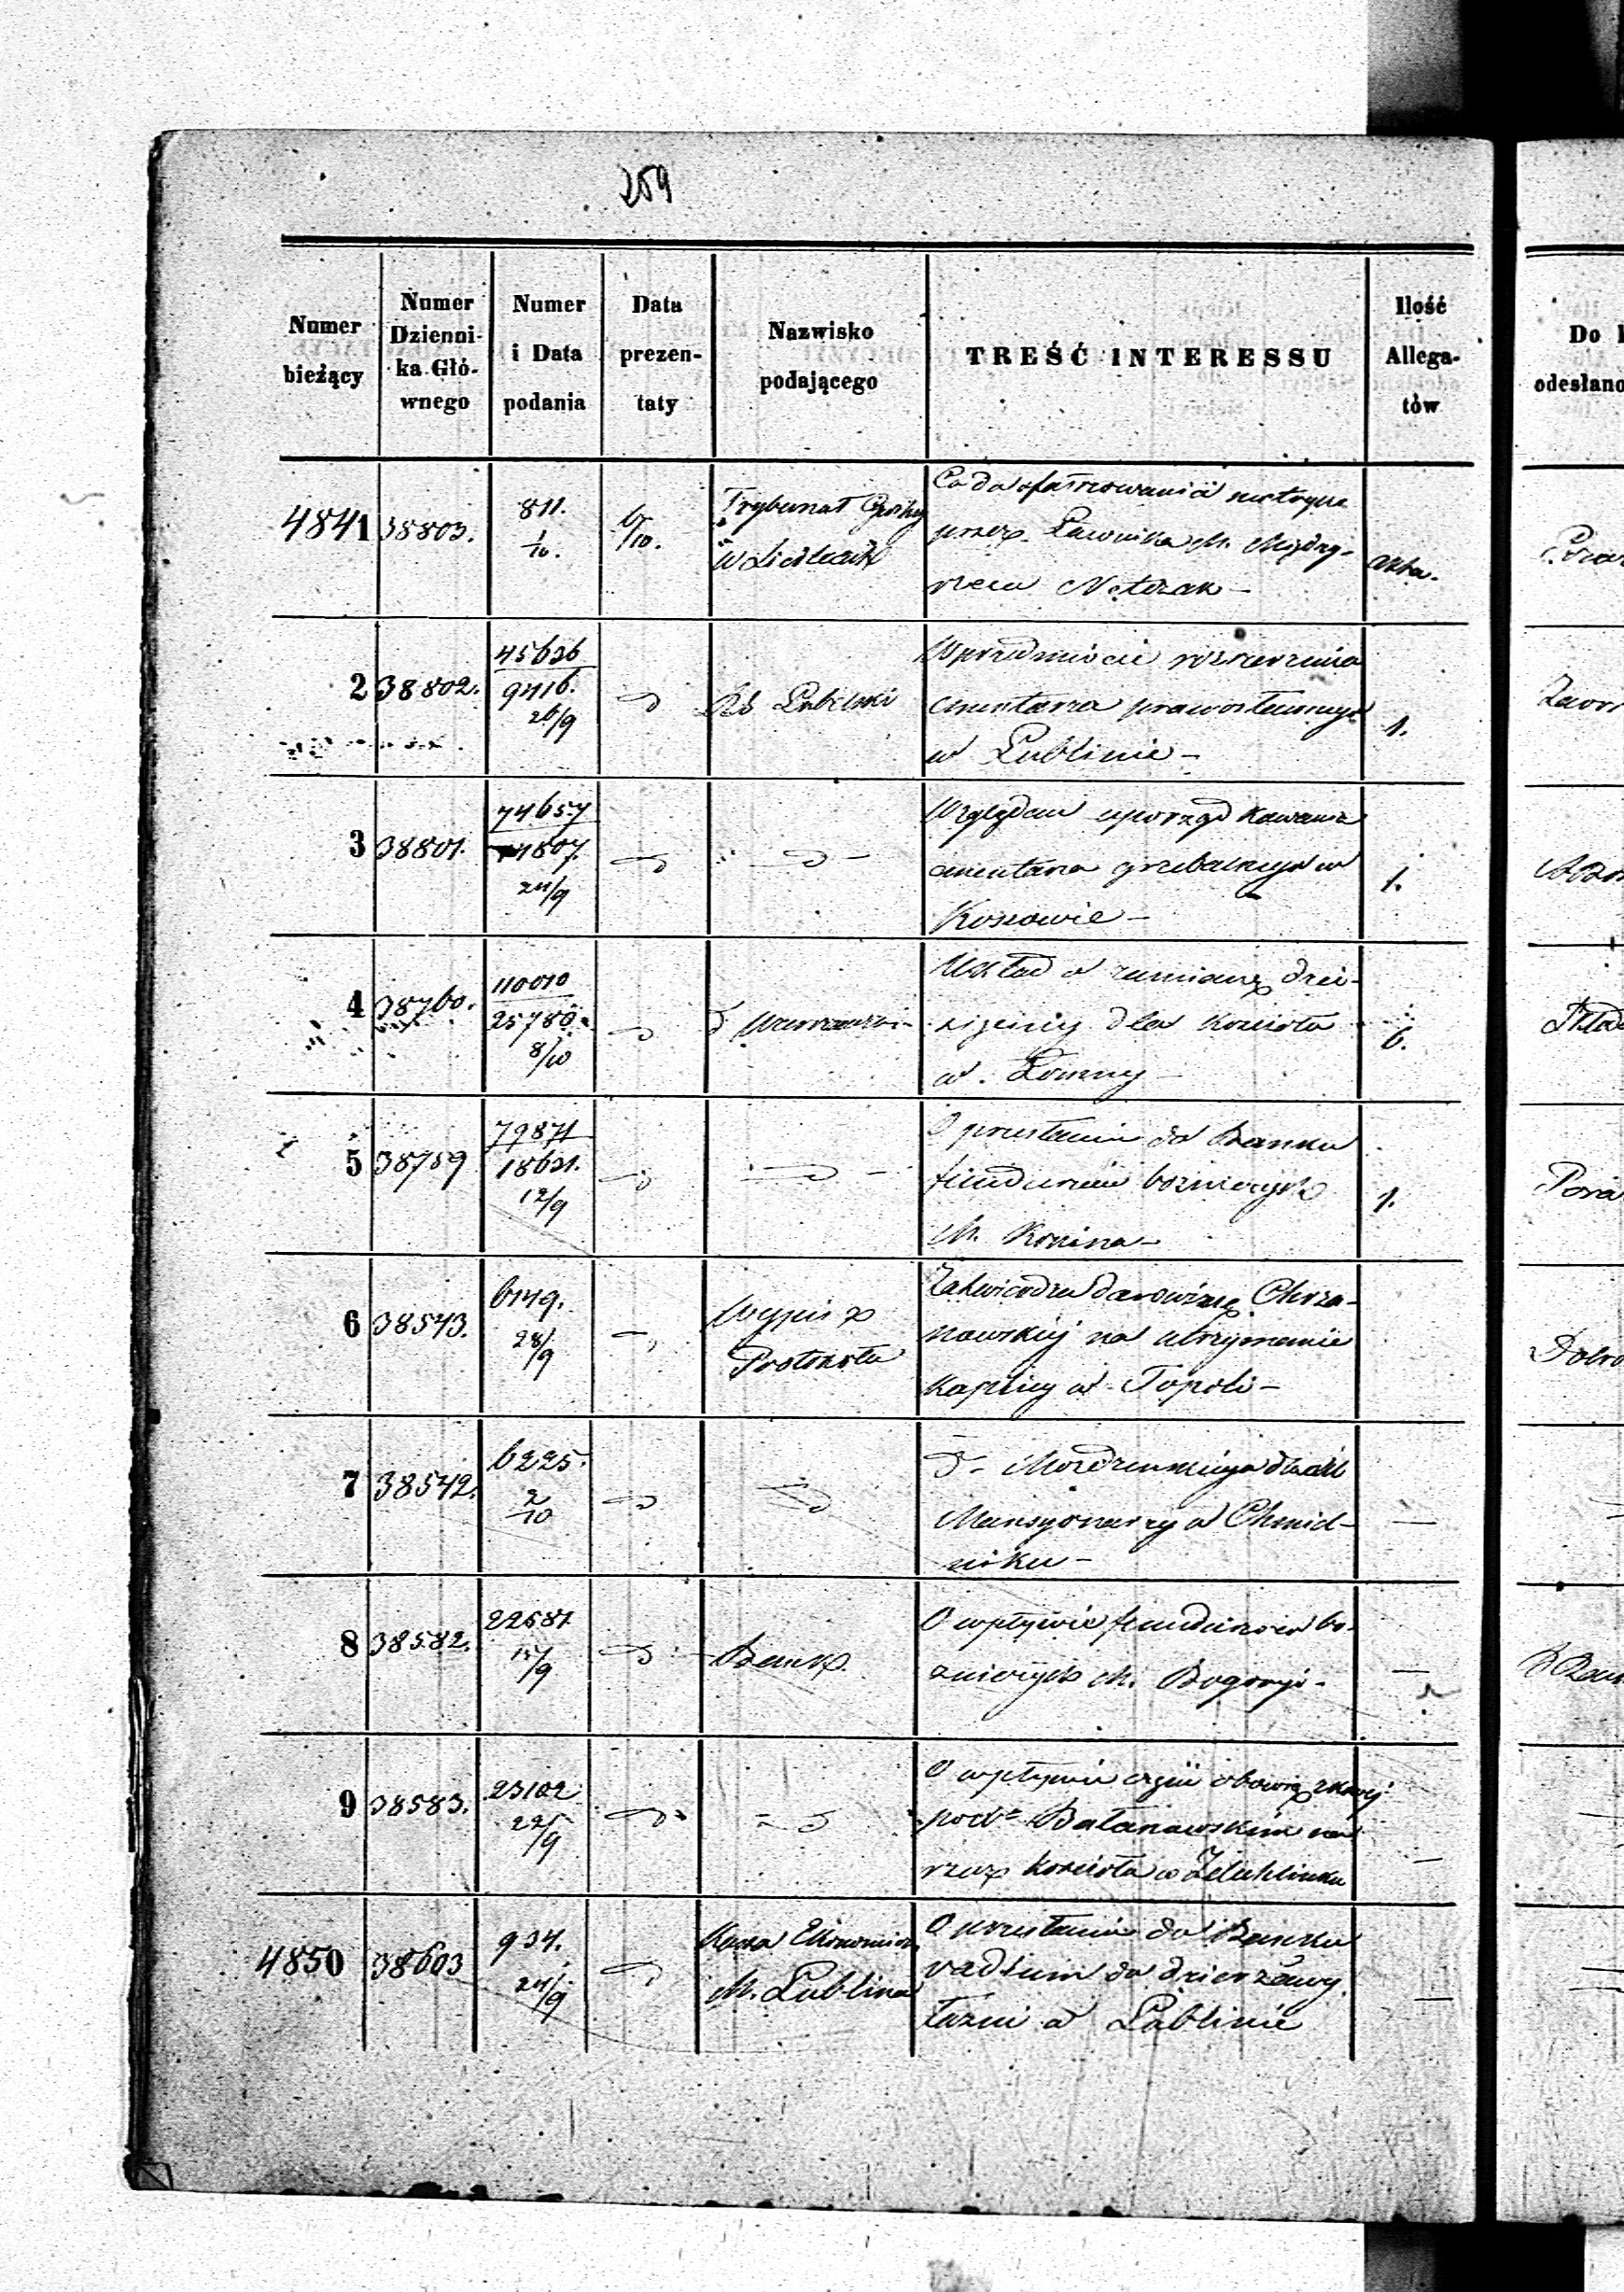 259
Numer bieżący
Numer Dzienni-ka Głó-wnego
Numer i Data podania
Data prezen-taty
Nazwisko podającego
TREŚĆ INTERESSU
Ilość Allega-tów
Do
odesłano
4841 38803. 811. 1/10. 6/10. Trybunał w Siedlcach
Co do sfałszowania metryk
przez Ławnika M. Między-
rzeca
Akta.
2 38802. 45636 9416. 26/9 Lubelski
W przedmiocie rozszerzenia
cmentarza prawosławnego
w Lublinie - 1.
3 38801. 74657 24/9
Względem uporządkowania
cmentarza grzebalnego w
Kossowie - 1.
4 38760. 110010 25780. 8/10 Warszawski
Układ o zamianę dzie-
sięciny dla kościoła
w Łomny - 6.
5 38759 79871 18631. 12/9
O przesłaniu do Banku
funduszów bożniczych
M. Konina - 1.
6 38543. 6149. 28/9 Wypis z Protokołu
Zatwierdza darowiznę Chrza-
nowskiej na utrzymanie
Kaplicy w Topoli -
7 38542. 6225. 2/10
Mansyonarzy w Chmiel-
niku -
8 38582. 22587 15/9 Bank.
O wpływie funduszów bo-
żniczych M. Bogoryi -
9 38583. 23102 22/9
O wpływie
Bałanowskim na
rzecz kościoła w Żelechlinku
4850 38603 934. 24/9 Kassa Ekonomicz. M. Lublina
O przesłaniu do Banku
vadium do dzierżawy
łaźni w Lublinie